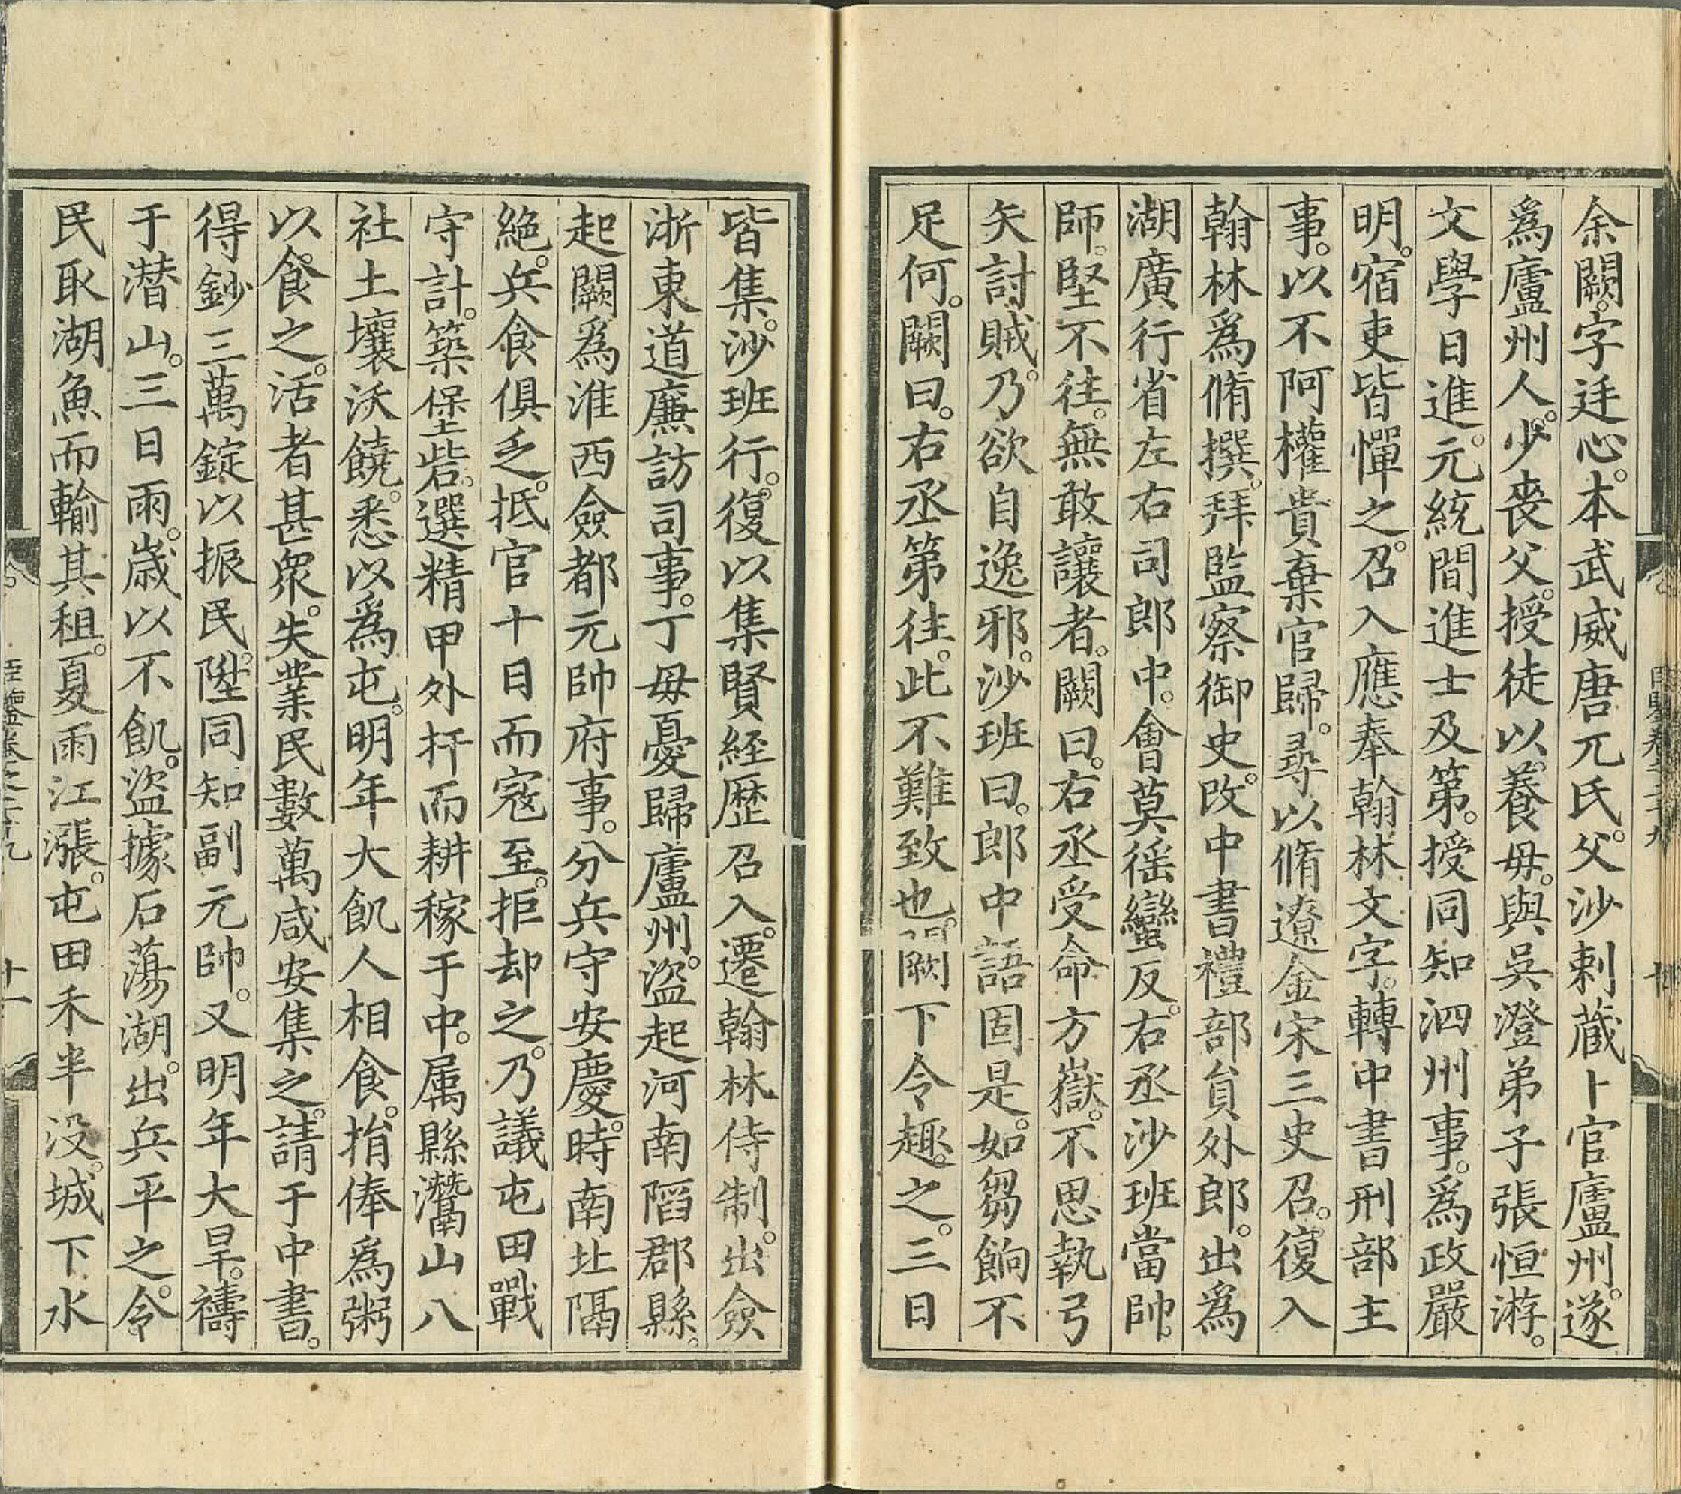 余闕。字廷心。本武威唐兀氏。父沙剌蔵卜官廬州。遂
爲廬州人。少喪父。授徒以養母。與吳澄弟子張恒游。
文學日進。元統間進士及第。授同知泗州事。爲政嚴
明。宿吏皆憚之。召入應奉翰林文字。轉中書刑部主
事。以不阿權貴棄官歸。尋以脩遼金宋三史召。復入
翰林爲脩撰。拜監察御史。改中書禮部貟外郎。出爲
湖廣行省左右司郎中。會莫徭蠻反。右丞沙班當帥
師。堅不往。無敢讓者。闕曰。右丞受命方嶽。不思執弓
矢討賊。乃欲自逸邪。沙班曰。郎中語固是。如芻餉不
足何。闕曰。右丞第往。此不難致也。闕下令趣之。三日
皆集。沙班行。復以集賢經歴召入。遷翰林侍制。出僉
浙東道廉訪司事。丁母憂歸廬州。盜起河南陷郡縣。
起闕爲淮西僉都元帥府事。分兵守安慶。時南北隔
絶。兵食俱乏。抵官十日而寇至。拒却之。乃議屯田戰
守計。築堡砦。選精甲外扞而耕稼于中。属縣灊山八
社土壤沃饒。悉以爲屯。明年大飢人相食。捐俸爲粥
以食之。活者甚衆。失業民數萬咸安集之。請于中書。
得鈔三萬錠以振民。陞同知副元帥。又明年大旱。禱
于潜山。三日雨。歳以不飢。盜據石蕩湖。出兵平之。令
民取湖魚而輸其租。夏雨江漲。屯田禾半没。城下水